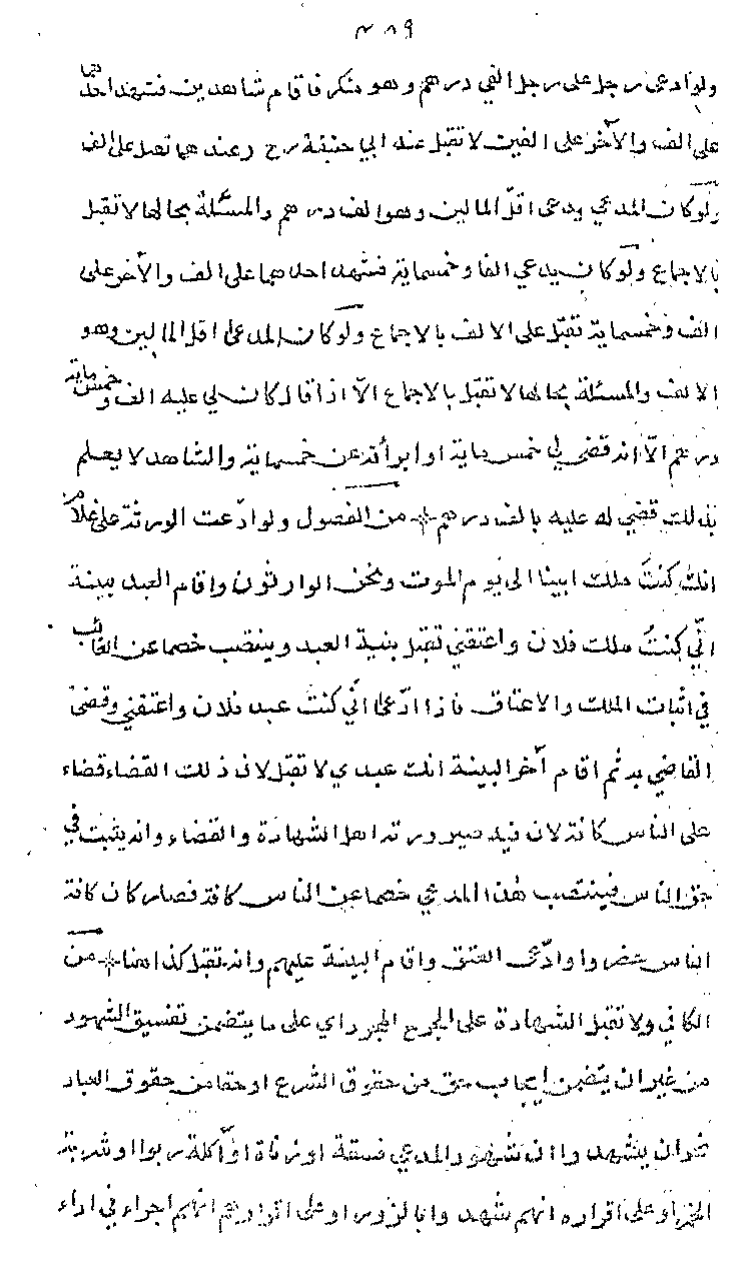 ٣٨٩
ولو ادعى رجل على رجل الفي درهم وهو منكر فاقام شاهدين فشهد احدهما
على الف والآخر على الفين لا تقبل عند ابي حنيفة رح وعندهما تقبل على الف
ولو كان المدعي يدعى اقلّ المالين وهو الف درهم والمسئلة بحالها لا تقبل
بالاجماع ولو كان يدعي الفا وخمسماية فشهد احدهما على الف والآخر على
الف وخمسماية تقبل على الالف بالاجماع ولو كان المدعى اقل المالين وهو
الالف والمسئلة بحالها لا تقبل بالاجماع الّا اذا قال كان لي عليه الف وخمس ماية
درهم الّا انه قضى لي خمس ماية او ابرأته عن خمسماية والشاهد لا يعلم
بذلك قضي له عليه بالف درهم من الفصول ولو ادّعت الورثة على غلام
انك كنت ملك ابينا الى يوم الموت ونحن الوارثون واقام العبد بينة
انّي كنت ملك فلان واعتقني تقبل بنية العبد وينتصب خصما عن الغائب
في اثبات الملك والاعتاق فاذا ادّعى انّي كنت عبد فلان واعتقني وقضى
القاضي به ثم اقام آخر البينة انك عبدي لا تقبل لان ذلك القضاء قضاء
على الناس كافة لان فيه صيرورته اهل الشهادة والقضاء وانه يثبت في
حق الناس فينتصب هذا المدعي خصما عن الناس كافة فصار كان كافة
الناس حضروا وادّعى العتق واقام البينة عليهم وانه تقبل كذا هنا من
الكافي ولا تقبل الشهادة على الجرح المجرد اي على ما يتضمن تفسيق الشهود
من غير ان يتضمن ايجاب حق من حقوق الشرع او حقا من حقوق العباد
نحو ان يشهدوا ان شهود المدعي فسقة او زناة او آكلة ربوا او شربة
الخمر او على اقراره انهم شهدوا بالزور او على اقرارهم انهم اجراء في اداء